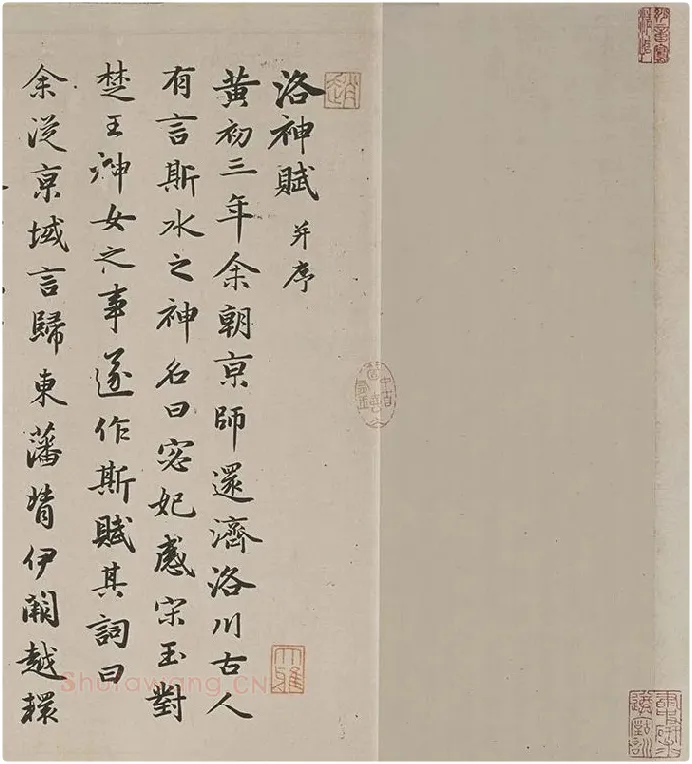 洛神賦 并序
黃初三年余朝京師還濟洛川古人
有言斯水之神名曰宓妃感宋玉對
楚王神女之事遂作斯賦其詞曰
余從京域言歸東藩背伊闕越轘
趙
大雅
Shufawang.CN